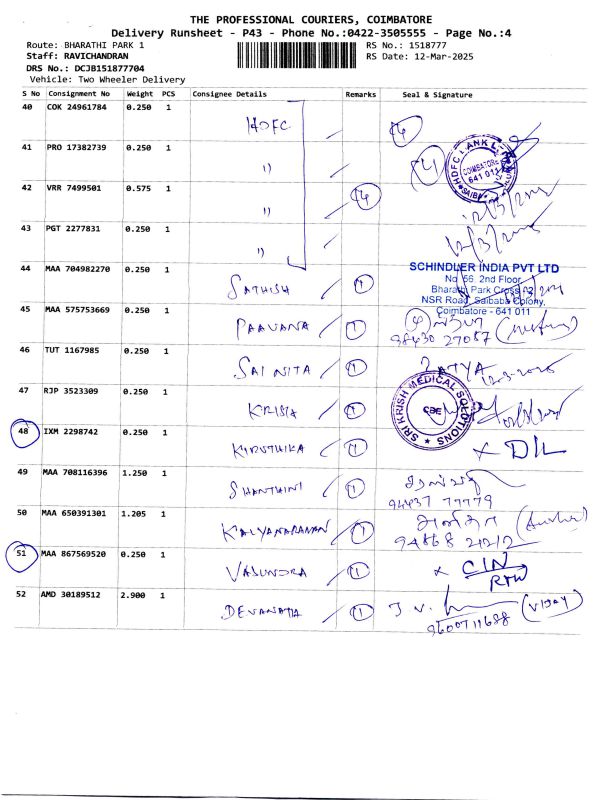 THE PROFESSIONAL COURIERS, COIMBATORE
Delivery Runsheet - P43 - Phone No.:0422-3505555 - Page No.:4
Route: BHARATHI PARK 1 RS No.: 1518777
Staff: RAVICHANDRAN RS Date: 12-Mar-2025
DRS No.: DCJB151877704
Vehicle: Two Wheeler Delivery
S No Consignment No Weight PCS Consignee Details Remarks Seal & Signature
40 COK 24961784 0.250 1 HDFC
41 PRO 17382739 0.250 1 "
HDFC BANK
COIMBATORE
641 011
42 VRR 7499501 0.575 1 "
12/3/2025
43 PGT 2277831 0.250 1 "
12/3/2025
44 MAA 704982270 0.250 1 SATHISH 1
SCHINDLER INDIA PVT LTD
No. 56, 2nd Floor,
Bharathi Park Cross
NSR Road, Saibaba Colony,
Coimbatore - 641 011
45 MAA 575753669 0.250 1 PAAVANA 1
98430 27087
46 TUT 1167985 0.250 1 SAI NITA 1
12-3-2025
47 RJP 3523309 0.250 1 KRISH 1
SRI KRISH MEDICAL SOLUTIONS
CBE
48 IXM 2298742 0.250 1 KIRUTHIKA 1 x D/L
49 MAA 708116396 1.250 1 SHANTHINI 1
94437 77779
50 MAA 650391301 1.205 1 KALYANARAMAN 1
94868 21212
51 MAA 867569520 0.250 1 VASUNDRA 1 x C/N
RTN
52 AMD 30189512 2.900 1 DEVANATHA 1 J V. (VIJAY)
9600711688